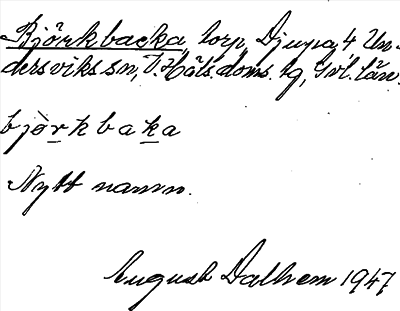 Björkbacka, torp, Djupa 4 Un-
dersviks sn, V. Häls. doms. tg, Gvl. län.
bjòrkbaka
Nytt namn.
August Dalhem 1947